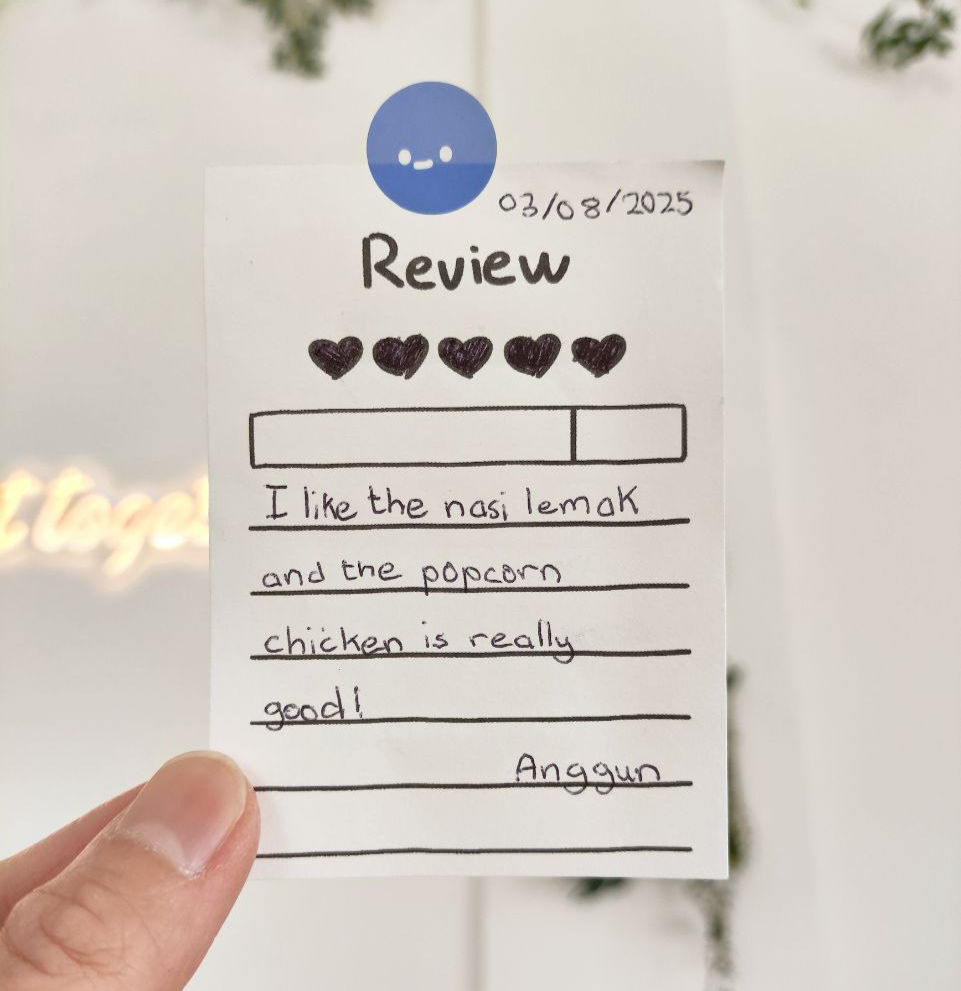 03/08/2025
Review
I like the nasi lemak
and the popcorn
chicken is really
good!
Anggun